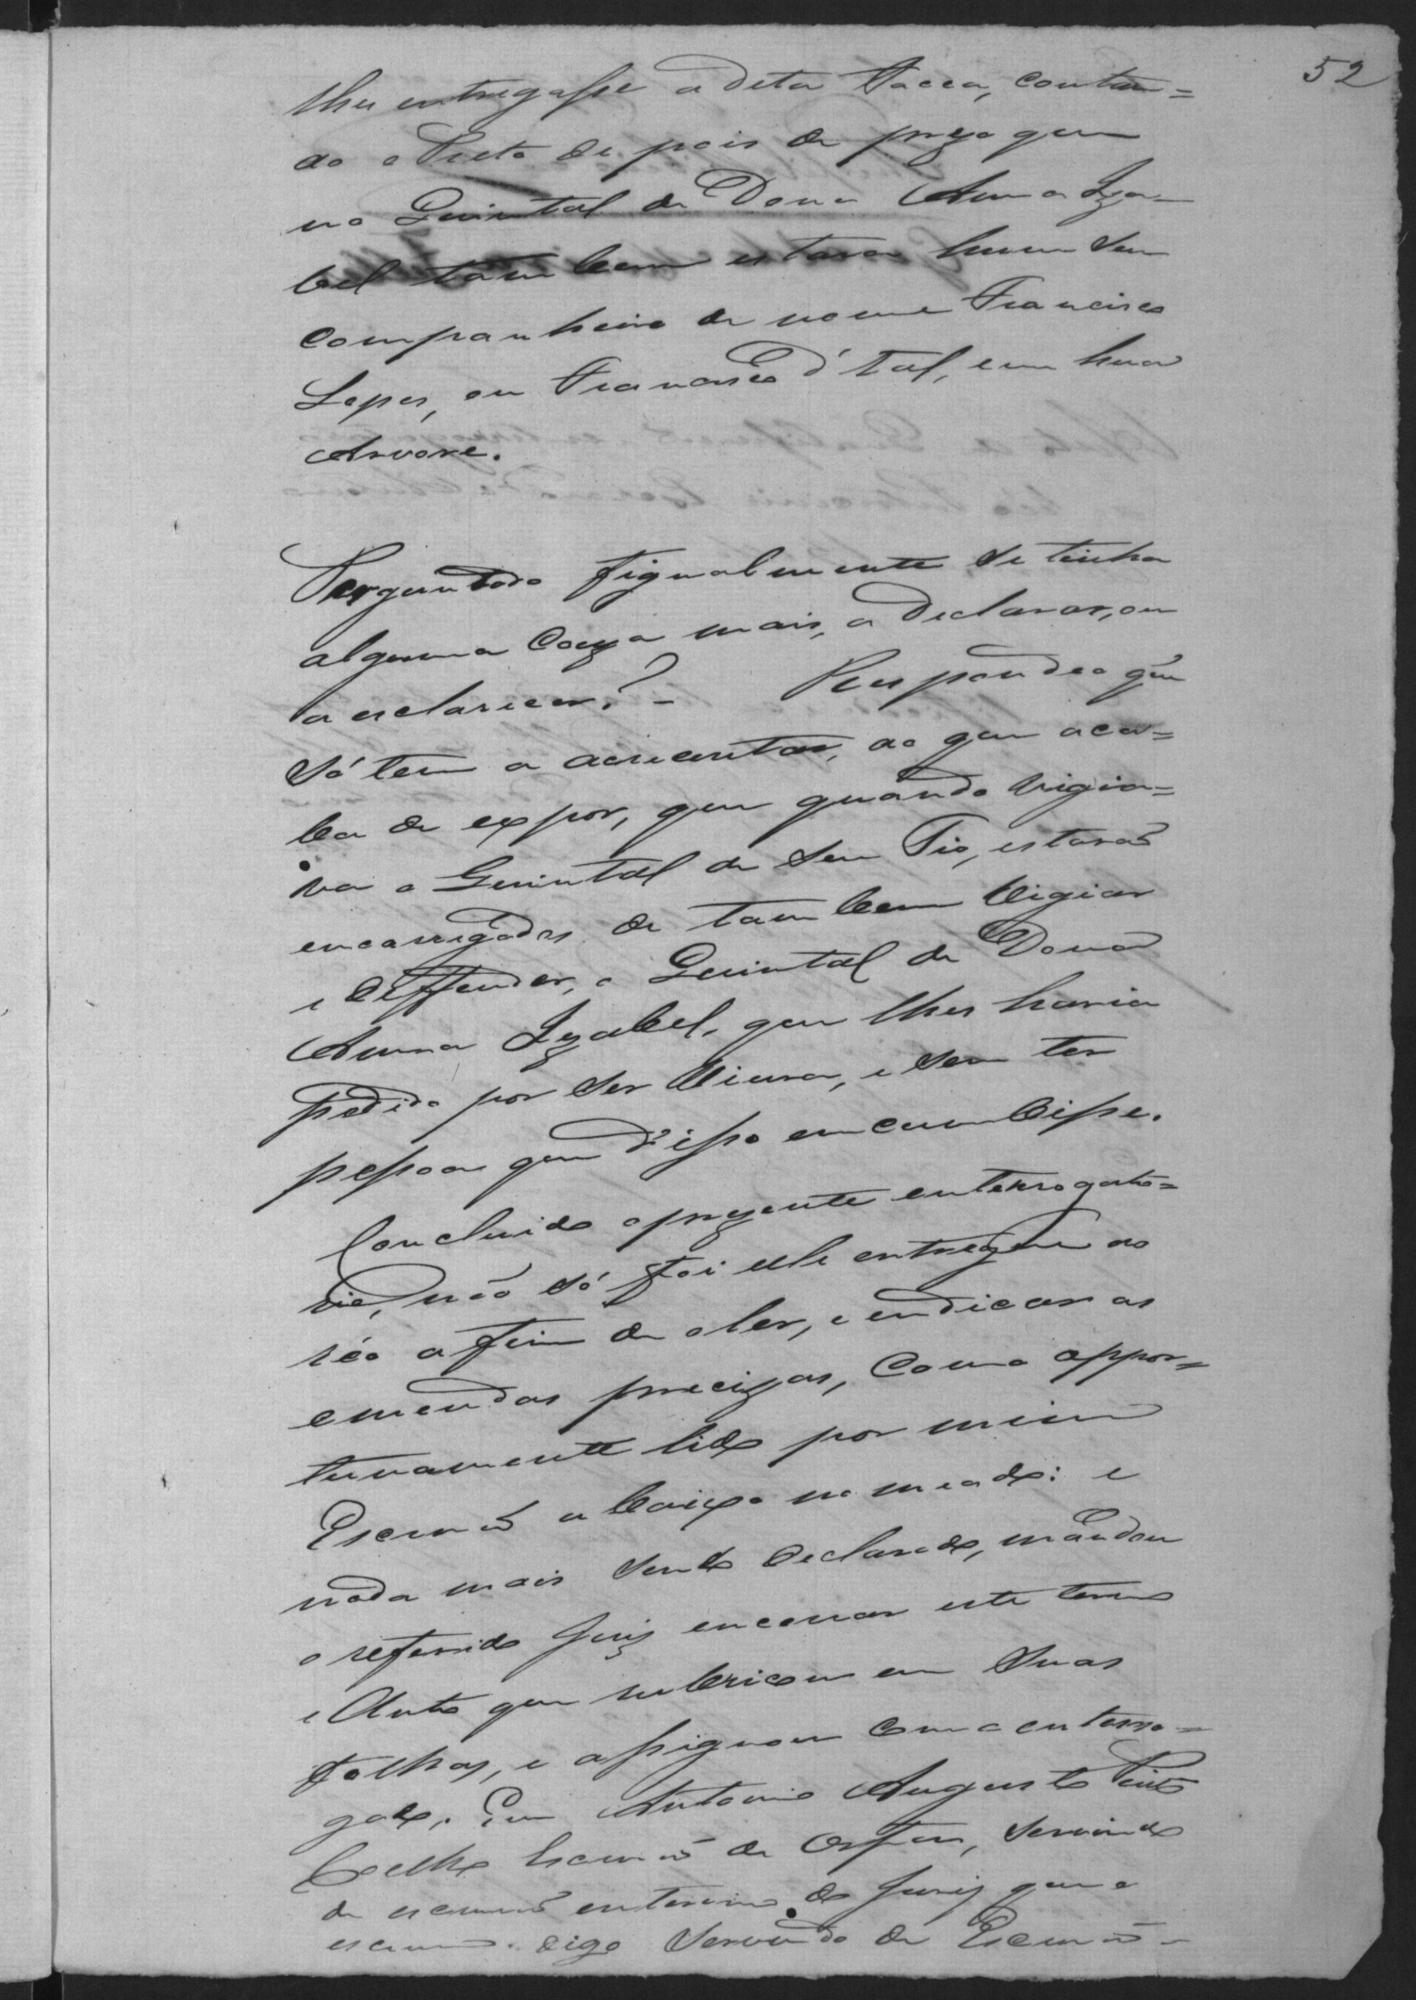 52
lhe entregasse a dita Facca, contan=
do o Preto depois de prezo que
no Quintal de Dona Anna Iza-
bel tambem estava hum seu
companheiro de nome Francisco
Lopes, ou Francisco d'tal, em hua
Arvore.
Perguntado figualmente se tinha
alguma couza mais, a declarar, ou
a esclarecer? - Respondeo que
só tem a acrecentar, ao que aca=
ba de expor, que quando vigia=
va o Quintal de seu Tio, estavão
encarregados de tambem vigiar
e deffender, o Quintal de Dona
Anna Izabel, que lhes havia
pedido por ser viuva, e sem ter
pessoa que d'isso encumbisse.
Concluido o prezente enterrogato=
rio, não só foi elle entregue ao
réo a fim de o ler, e endicar as
emendas precizas, como oppor=
tunamente lido por mim
Escrivão abaixo nomeado: e
nada mais sendo declarado, mandou
o referido Juiz encerrar este termo
e Auto que rubricou em suas
folhas, e assignou com o enterro=
gado. Eu Antonio Augusto Pinto
Coelho Escrivão de Orfãos, servindo
de escrivão enterino do Juiz que o
escrevi. digo servindo de Escrivão -